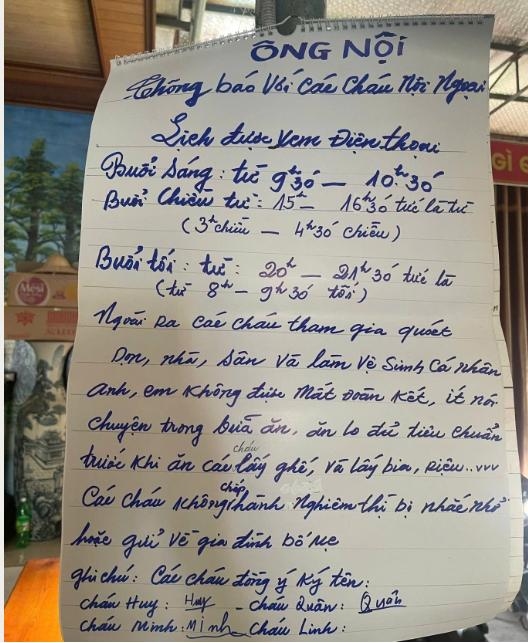 ÔNG NỘI
Thông báo Với các cháu Nội Ngoại
Lịch được xem Điện thoại
Buổi Sáng: từ 9h30 — 10h30
Buổi Chiều từ: 15h — 16h30 tức là từ
(3h chiều — 4h30 chiều)
Buổi tối: từ: 20h — 21h30 tức là
(từ 8h — 9h30 tối)
Ngoài Ra các cháu tham gia quét
Dọn, nhà, sân và làm vệ sinh cá nhân
anh, em không được mất đoàn kết, ít nói
chuyện trong bữa ăn, ăn lo đủ tiêu chuẩn
trước khi ăn các cháu lấy ghế, và lấy bia, Rượu..vvv
Các cháu không chấp hành nghiêm thì bị nhắc nhở
hoặc gửi về gia đình bố mẹ
ghi chú: Các cháu đồng ý ký tên:
cháu Huy: Huy - cháu Quân: Quân
cháu Minh: Minh Cháu Linh: